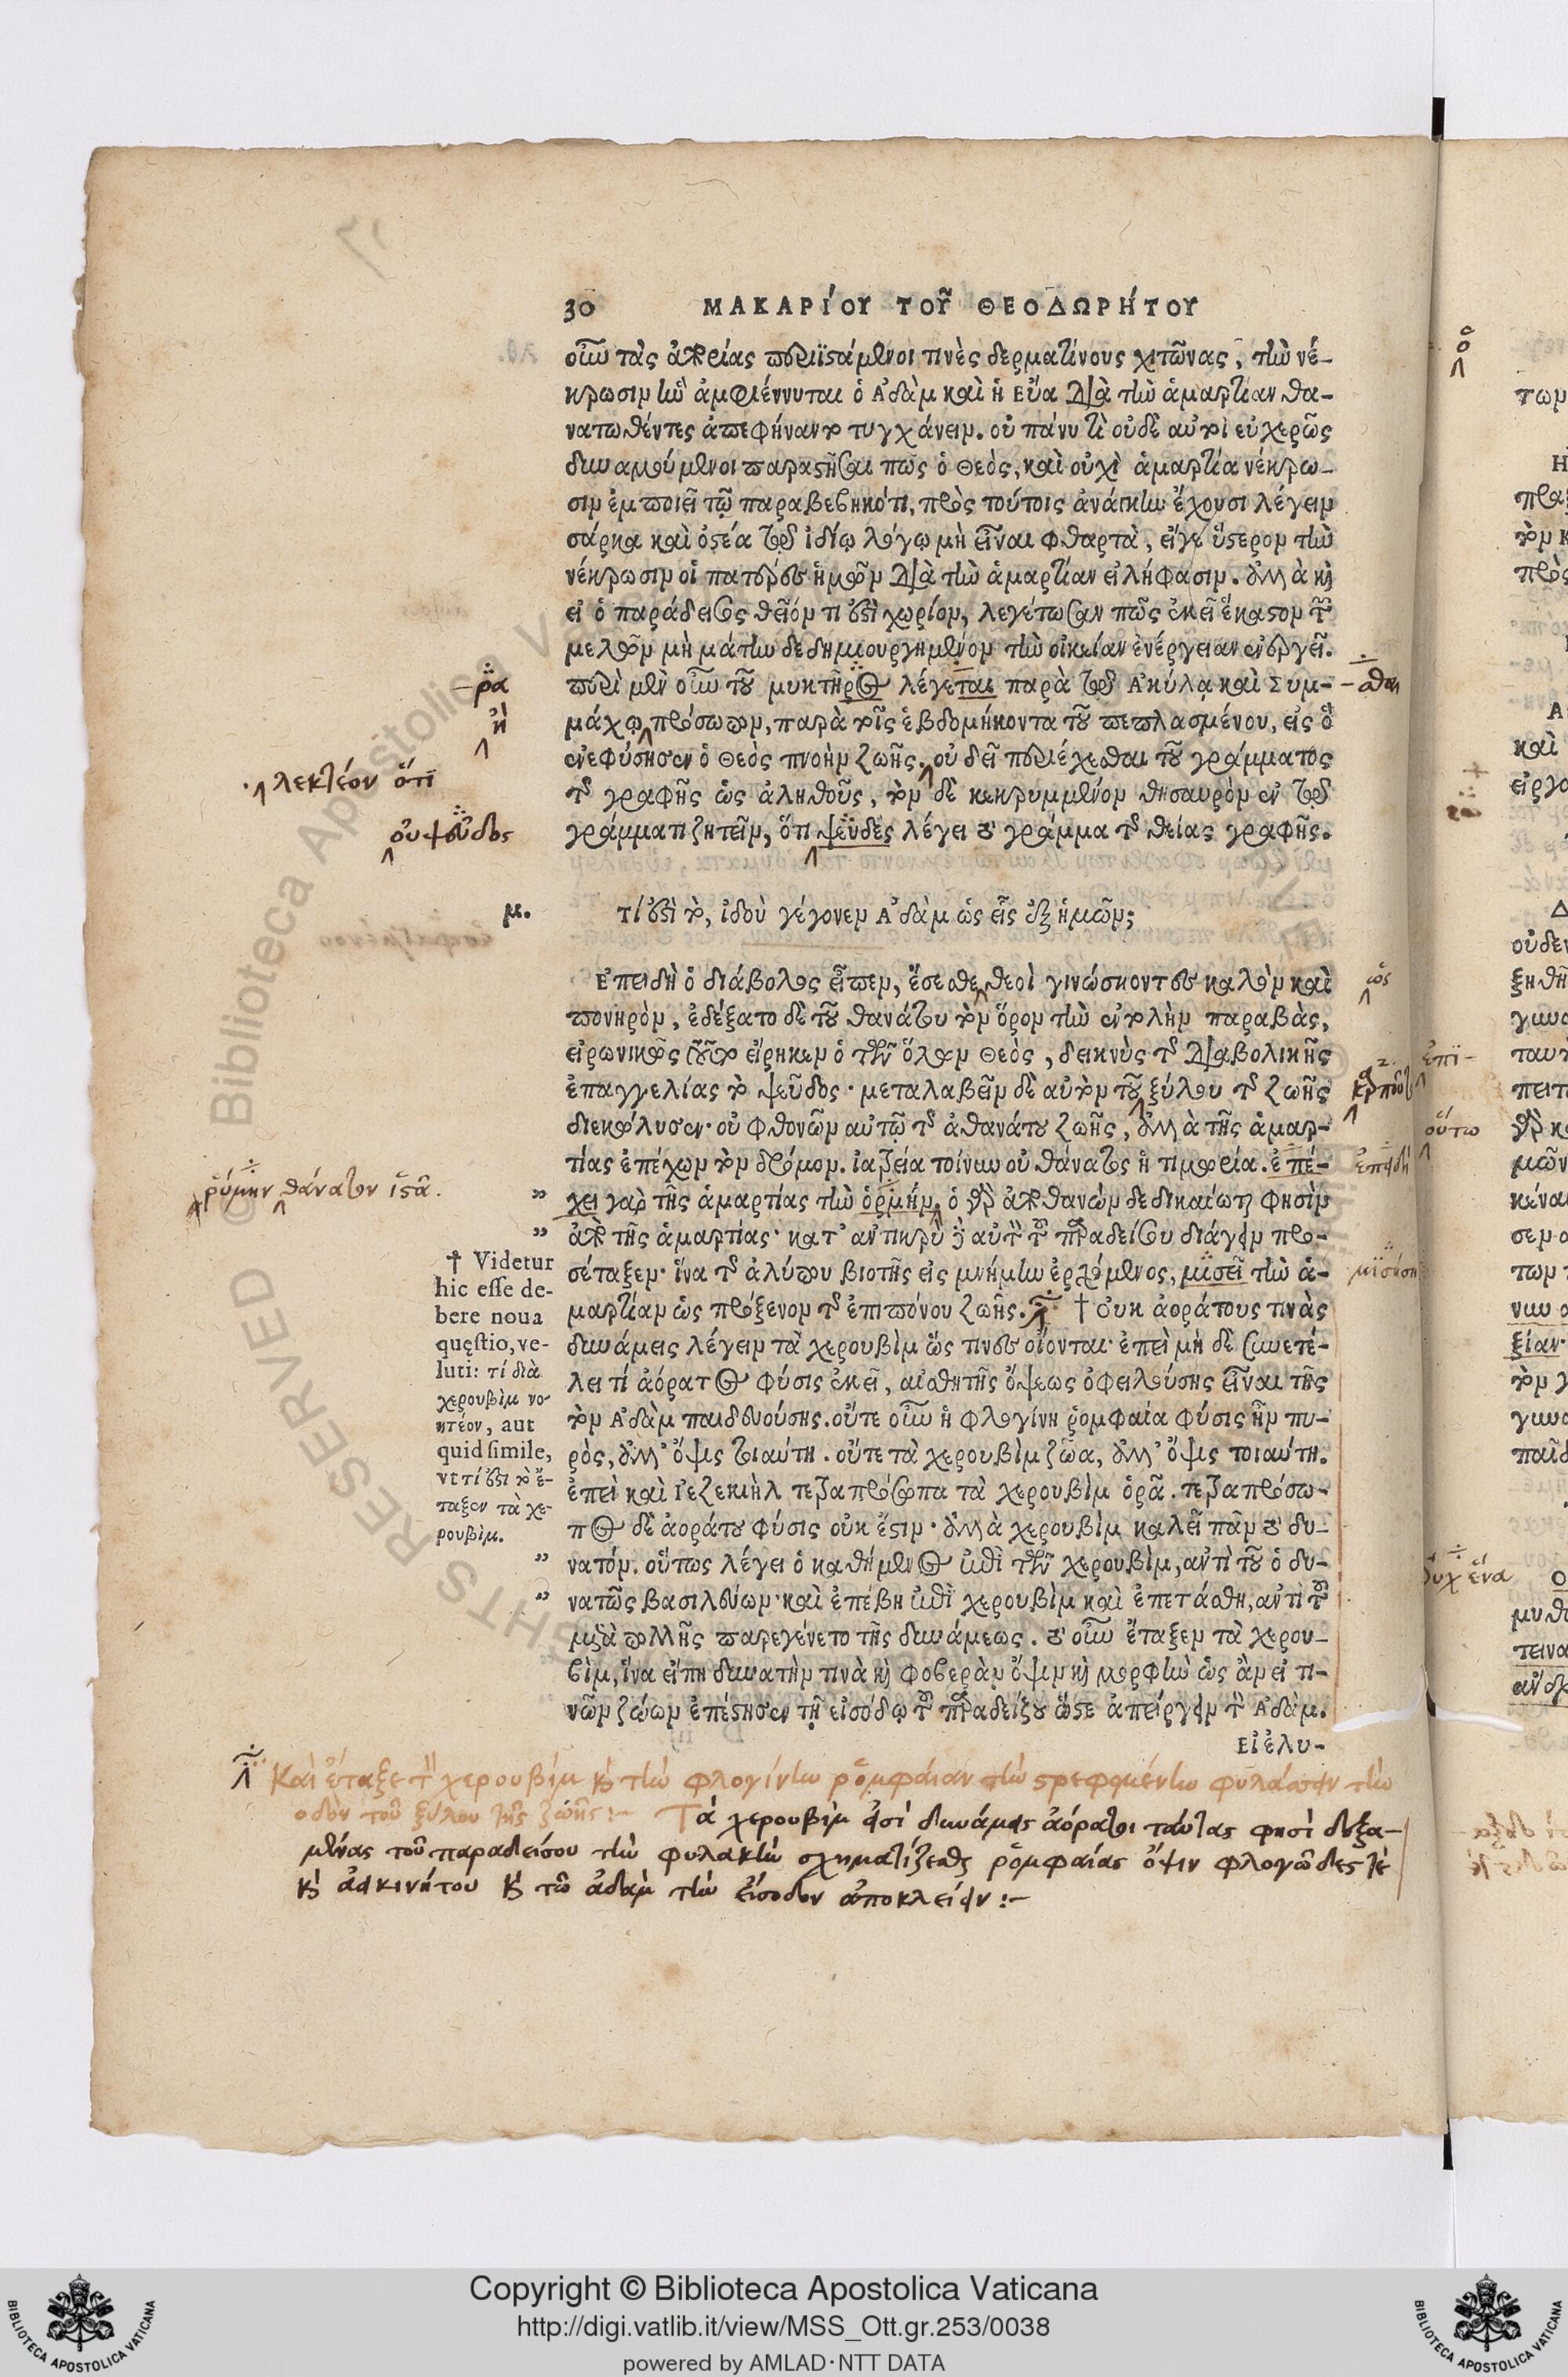 30 ΜΑΚΑΡΊΟΥ ΤΟΥ͂ ΘΕΟΔΩΡΉΤΟΥ
οὖν τὰς ἀπορίας περιϊστάμενοι τινὲς δερματίνους χιτῶνας, τὴν νέ-
κρωσιν ἣν ἀμφιέννυται ὁ Ἀδὰμ καὶ ἡ Εὔα διὰ τὴν ἁμαρτίαν θα-
νατωθέντες ἀπεφήναντο τυγχάνειν. οὐ πάνυ τὶ οὐδὲ αὐτοὶ εὐχερῶς
δυναμούμενοι παραστῆσαι πῶς ὁ Θεὸς, καὶ οὐχὶ ἁμαρτία νέκρω-
σιν ἐμποιεῖ τῷ παραβεβηκότι, πρὸς τούτοις ἀνάγκην ἔχουσι λέγειν
σάρκα καὶ ὀστέα τῷ ἰδίῳ λόγῳ μὴ εἶναι φθαρτὰ, εἴγε ὕστερον τὴν
νέκρωσιν οἱ πατέρες ἡμῶν διὰ τὴν ἁμαρτίαν εἰλήφασιν. ἀλλὰ καὶ
εἰ ὁ παράδεισος θεῖόν τι ἐστὶ χωρίον, λεγέτωσαν πῶς ἐκεῖ ἕκαστον τῶν
μελῶν μὴ μάτην δεδημιουργημένον τὴν οἰκείαν ἐνέργειαν ἐνήργει.
περὶ μὲν οὖν τοῦ μυκτῆρος λέγεται παρὰ τῷ Ἀκύλᾳ καὶ Συμ-
μάχῳ πρόσωπον, παρὰ τοῖς ἑβδομήκοντα τοῦ πεπλασμένου, εἰς ὃ
ἐνεφύσησεν ὁ Θεὸς πνοὴν ζωῆς. οὐ δεῖ περιέχεσθαι τοῦ γράμματος
τῆς γραφῆς ὡς ἀληθοῦς, τὸν δὲ κεκρυμμένον θησαυρὸν ἐν τῷ
γράμματι ζητεῖν, ὅτι ψευδὲς λέγει τὸ γράμμα τῆς θείας γραφῆς.
ρα
ἢ
λεκτέον ὅτι
οὐ ψεῦδος
σθαι
με. Τί ἐστὶ τὸ, ἰδοὺ γέγονεν Ἀδὰμ ὡς εἷς ἐξ ἡμῶν;
Ἐπειδὴ ὁ διάβολος εἶπεν, ἔσεσθε θεοὶ γινώσκοντες καλὸν καὶ
πονηρὸν, ἐδέξατο δὲ τοῦ θανάτου τὸν ὅρον τὴν ἐντολὴν παραβὰς,
εἰρωνικῶς τοῦτο εἴρηκεν ὁ τῶν ὅλων Θεὸς, δεικνὺς τῆς διαβολικῆς
ἐπαγγελίας τὸ ψεῦδος· μεταλαβεῖν δὲ αὐτὸν τοῦ ξύλου τῆς ζωῆς
διεκώλυσεν· οὐ φθονῶν αὐτῷ τῆς ἀθανάτου ζωῆς, ἀλλὰ τῆς ἁμαρ-
τίας ἐπέχων τὸν δρόμον. ἰατρεία τοίνυν οὐ θάνατος ἡ τιμωρία. ἐπέ-
" χει γὰρ τῆς ἁμαρτίας τὴν ὁρμήν, ὁ γὰρ ἀποθανὼν δεδικαίωται φησὶν
" ἀπὸ τῆς ἁμαρτίας· κατ' αντικρὺ δὲ αὐτὸν τοῦ παραδείσου διάγειν προ-
σέταξεν· ἵνα τῆς ἀλύπου βιοτῆς εἰς μνήμην ἐρχόμενος, μισεῖ τὴν ἁ-
μαρτίαν ὡς πρόξενον τῆς ἐπιπόνου ζωῆς. † Οὐκ ἀοράτους τινὰς
δυνάμεις λέγειν τὰ χερουβὶμ ὥς τινες οἴονται· ἐπεὶ μὴ δὲ συνετέ-
λει τί ἀόρατος φύσις ἐκεῖ, αἰσθητῆς ὄψεως ὀφειλούσης εἶναι τῆς
τὸν Ἀδὰμ παιδευούσης. οὔτε οὖν ἡ φλογίνη ῥομφαία φύσις ἦν πυ-
ρὸς, ἀλλ' ὄψις τοιαύτη. οὔτε τὰ χερουβὶμ ζῶα, ἀλλ' ὄψις τοιαύτη.
ἐπεὶ καὶ Ἰεζεκιὴλ τετραπρόσωπα τὰ χερουβὶμ ὁρᾷ. τετραπρόσω-
πος δὲ ἀοράτου φύσις οὐκ ἔστιν· ἀλλὰ χερουβὶμ καλεῖ πᾶν τὸ δυ-
" νατόν. οὕτως λέγει ὁ καθήμενος ἐπὶ τῶν χερουβὶμ, αντὶ τοῦ ὁ δυ-
" νατῶς βασιλεύων· καὶ ἐπέβη ἐπὶ χερουβὶμ καὶ ἐπετάσθη, αντὶ τοῦ
μετὰ πολλῆς παρεγένετο τῆς δυνάμεως. τὸ οὖν ἔταξεν τὰ χερου-
βὶμ, ἵνα εἴπῃ δυνατὴν τινὰ καὶ φοβερὰν ὄψιν καὶ μορφὴν ὡς ἂν εἰ τι-
νῶν ζώων ἐπέστησεν τῇ εἰσόδῳ τοῦ παραδείσου ὥστε ἀπείργειν τὸν Ἀδὰμ.
Εἰ ἐλυ-
ὡς
καρποῦ
ἐπειδὴ
ῥύμην θάνατον ἱστᾶ.
μισήσῃ
† Videtur
hic esse de-
bere noua
quęstio, ve-
luti: τί διὰ
χερουβὶμ νο-
ητέον, aut
quid simile,
vt τί ἐστι τὸ ἔ-
ταξεν τὰ χε-
ρουβὶμ.
Καὶ ἔταξε τὰ χερουβὶμ καὶ τὴν φλογίνην ῥομφαίαν τὴν στρεφομένην φυλάσσειν τὴν
οδὸν τοῦ ξύλου τῆς ζωῆς :– Τὰ χερουβὶμ εἰσὶ δυνάμεις ἀόρατοι ταύτας φησὶ δεξα-
μένας τοῦ παραδείσου τὴν φυλακὴν σχηματίζεσθαι ῥομφαίας ὄψιν φλογῶδες τὲ
καὶ ἀεικινήτου καὶ τῶ ἀδὰμ τὴν εἴσοδον ἀποκλείειν :–
ὃ
ἐπϊ-
οὕτω
οὐχ ἕνα
Copyright © Biblioteca Apostolica Vaticana
http://digi.vatlib.it/view/MSS_Ott.gr.253/0038
powered by AMLAD·NTT DATA
BIBLIOTECA APOSTOLICA VATICANA
BIBLIOTECA APOSTOLICA VATICANA